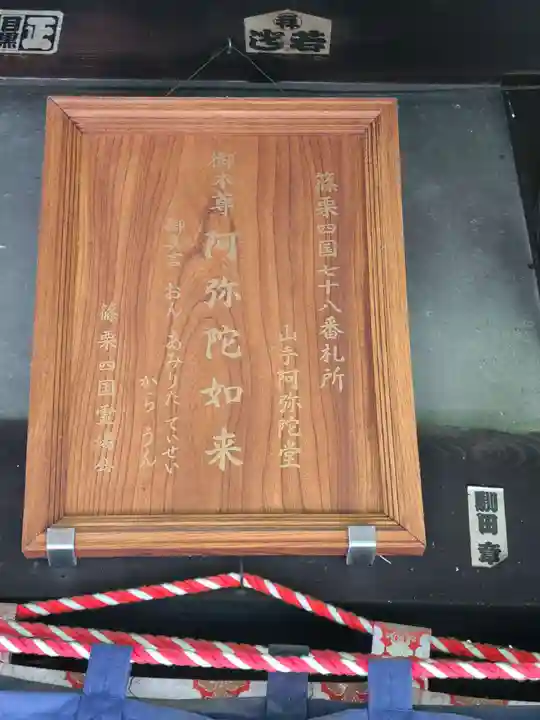 篠栗四国七十八番札所
山手阿弥陀堂
御本尊 阿弥陀如来
御真言 おん あみりた ていせい
から うん
篠栗四国霊場会
正
目黒